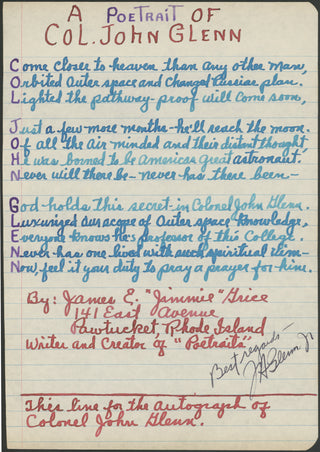 A POETRAIT OF
COL. JOHN GLENN
Come Closer to heaven than any other man,
Orbited Outer space and Changed Russian plan.
Lighted the pathway-proof will Come soon,
Just a few more months-he'll reach the moon.
Of all the Air minded and their distant thought
He was borned to be Americas great astronaut.
Never will there be-never has there been-
God holds this secret in Colonel John Glenn.
Luxurized our scope of Outer space Knowledge,
Everyone knows he's professor of this College.
Never has one lived with such spiritual
Now, feel it your duty to pray a prayer for him.
By: James E. "Jimmie" Grice
141 East Avenue
Pawtucket, Rhode Island
Writer and Creator of "Poetraits"
Best regards-
JHGlenn Jr
This line for the autograph of
Colonel John Glenn.